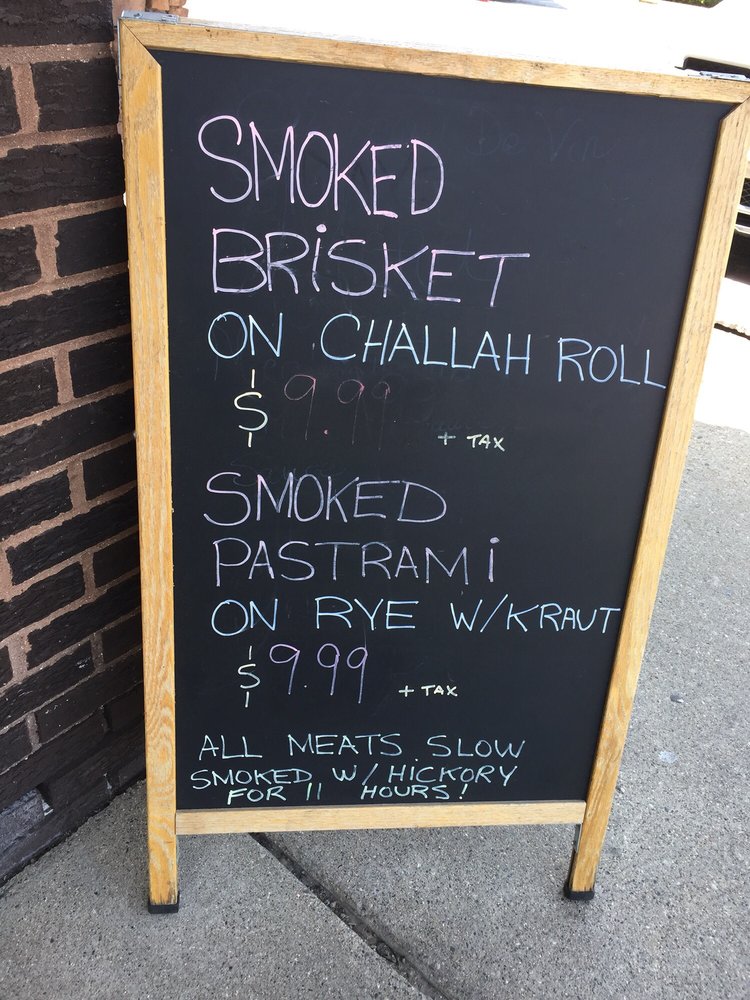 SMOKED
BRISKET
ON CHALLAH ROLL
$ 9.99 + TAX
SMOKED
PASTRAMI
ON RYE W/KRAUT
$ 9.99 + TAX
ALL MEATS SLOW
SMOKED W/ HICKORY
FOR 11 HOURS!